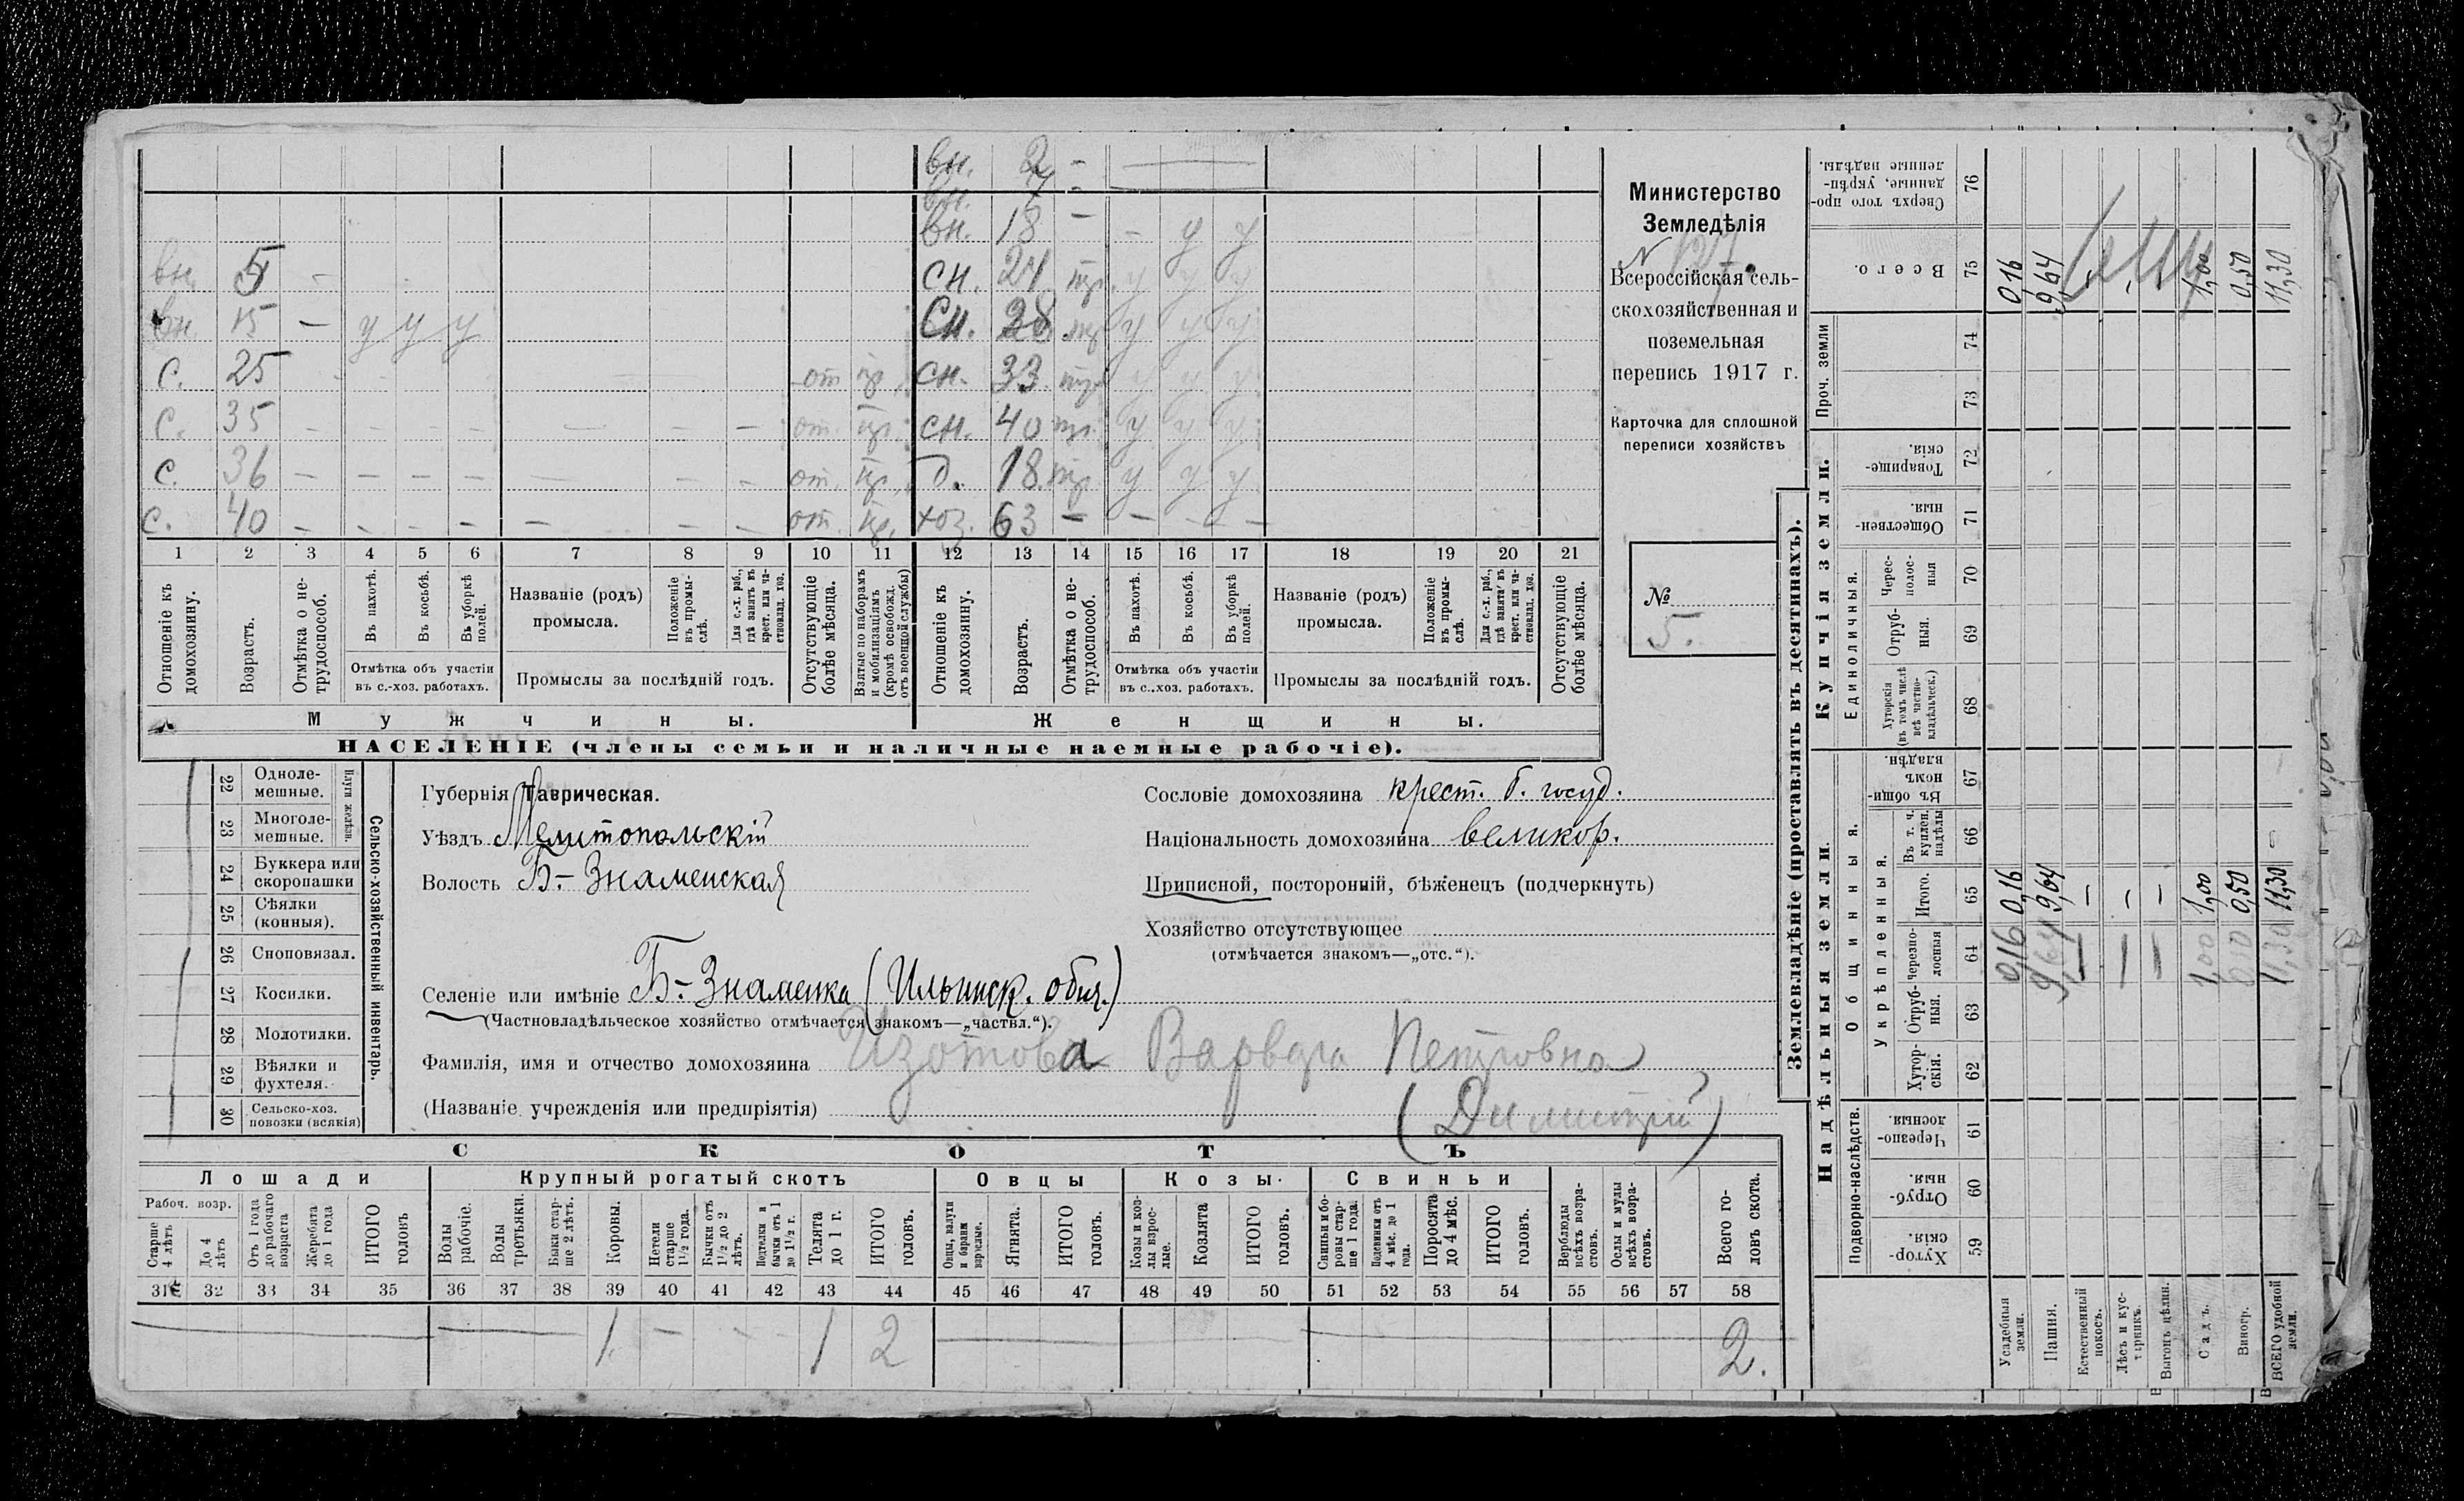 вн. 2 -
вн. 7 -
вн. 18 - - у у
вн. 5 - сн. 24 пр. у у у
вн. 15 - у у у сн. 28 пр. у у у
с. 25 - - от. пр. сн. 33 пр. у у у
с. 35 - - - - - - - от. пр. сн. 40 пр. у у у
с. 36 - - - - - - - от. пр. д. 18 пр. у у у
с. 40 - - - - - - - от. пр. хоз. 63 - - - -
1 2 3 4 5 6 7 8 9 10 11 12 13 14 15 16 17 18 19 20 21
Отношеніе къ домохозяину.
Возрастъ.
Отмѣтка о не-трудоспособ.
Въ пахотѣ.
Въ косьбѣ.
Въ уборкѣ полей.
Отмѣтка объ участіи
въ с.-хоз. работахъ.
Названіе (родъ)
промысла.
Положеніе въ промы-слѣ.
Для с.-х. раб., гдѣ занятъ въ крест. или ча-стновлад. хоз.
Промыслы за послѣдній годъ.
Отсутствующіе болѣе мѣсяца.
Взятые по наборамъ и мобилизаціямъ (кромѣ освобожд. отъ военной службы)
Отношеніе къ домохозяину.
Возрастъ.
Отмѣтка о не-трудоспособ.
Въ пахотѣ.
Въ косьбѣ.
Въ уборкѣ полей.
Отмѣтка объ участіи
въ с..хоз. работахъ.
Названіе (родъ)
промысла.
Положеніе въ промы-слѣ.
Для с.-х. раб., гдѣ занята въ крест. или ча-стновлад. хоз.
Промыслы за послѣдній годъ.
Отсутствующіе болѣе мѣсяца.
Мужчины. Женщины.
НАСЕЛЕНІЕ (члены семьи и наличные наемные рабочіе).
Министерство
Земледѣлія
N 127.
Всероссійская сель-
скохозяйственная и
поземельная
перепись 1917 г.
Карточка для сплошной
переписи хозяйствъ
№
5.
22 Одноле-мешные.
23 Многоле-мешные.
Плуги желѣзн.
24 Буккера или скоропашки
25 Сѣялки (конныя).
26 Сноповязал.
27 Косилки.
28 Молотилки.
29 Вѣялки и фухтеля.
30 Сельско-хоз. повозки (всякія)
Сельско-хозяйственный инвентарь.
Губернія Таврическая.
Уѣздъ Мелитопольскій
Волость Б.-Знаменская
Селеніе или имѣніе Б.-Знаменка (Ильинск. общ.)
(Частновладѣльческое хозяйство отмѣчается знакомъ—„частвл.“).
Фамилія, имя и отчество домохозяина Изотова Варвара Петровна
(Названіе учрежденія или предпріятія) (Димитрій)
Сословіе домохозяина крест. б. госуд.
Національность домохозяина великор.
Приписной, посторонній, бѣженецъ (подчеркнуть)
Хозяйство отсутствующее
(отмѣчается знакомъ—„отс.“).
СКОТЪ
Лошади Крупный рогатый скотъ Овцы Козы. Свиньи
Рабоч. возр.
Старше 4 лѣтъ
До 4 лѣтъ
Отъ 1 года до рабочаго возраста
Жеребята до 1 года
ИТОГО головъ
Волы рабочіе.
Волы третьяки.
Быки стар-ше 2 лѣтъ.
Коровы.
Нетели старше 1½ года.
Бычки отъ 1½ до 2 лѣтъ.
Подтелки и бычки отъ 1 до 1½ г.
Телята до 1 г.
ИТОГО головъ.
Овцы, валухи и бараны взрослые.
Ягнята.
ИТОГО головъ.
Козы и коз-лы взрос-лые.
Козлята
ИТОГО головъ.
Свиньи и бо-ровы стар-ше 1 года.
Подсвинки отъ 4 мѣс. до 1 года.
Поросята до 4 мѣс.
ИТОГО головъ.
Верблюды всѣхъ возра-стовъ.
Ослы и мулы всѣхъ возра-стовъ.
Всего го-ловъ скота.
31 32 33 34 35 36 37 38 39 40 41 42 43 44 45 46 47 48 49 50 51 52 53 54 55 56 57 58
1 - - - 1 2 2.
Землевладѣніе (проставлять въ десятинахъ).
Надѣльныя земли.
Купчія земли.
Проч. земли
Подворно-наслѣдств.
Общинныя.
Укрѣпленныя.
Единоличныя.
Хутор-скія. 59
Отруб-ныя. 60
Черезпо-лосныя 61
Хутор-скія. 62
Отруб-ныя. 63
Черезпо-лосныя 64
Итого. 65
Въ т. ч. куплен. надѣлы 66
Въ общин-номъ владѣн. 67
Хуторскія (въ томъ числѣ всѣ частно-владѣльческ.) 68
Отруб-ныя. 69
Черес-полос-ныя 70
Обществен-ныя. 71
Товарище-скія. 72
73
74
Всего. 75
Сверхъ того про-данные, укрѣп-ленные надѣлы. 76
Усадебныя земли. 0,16 0,16 0,16
Пашня. 9,64 9,64 9,64
Естественный покосъ. - -
Лѣсъ и кус-тарникъ. - - -
Выгонъ цѣлин. - -
Садъ. 1,00 1,00 1,00
Виногр. 0,50 0,50 0,50
ВСЕГО удобной земли. 11,30 11,30 11,30